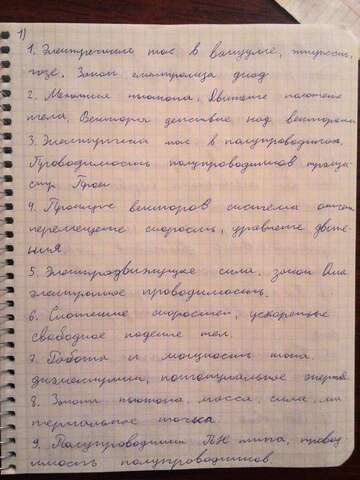 1)
1. Электрический ток в вакууме, жидкости,
газе. Закон электролиза диод
2. Механика ньютона, Движение
тела, Векторы действие над векторами
3. Электрический ток в полупроводниках.
Проводимость полупроводников
4. Проекция векторов система
перемещение скорость, уравнение движе-
ния.
5. Электродвижущая сила, закон Ома
электронное проводимость.
6. Сложение скоростей, ускоренные
свободное падение тел.
7. Работа и мощность тока.
потенциальное
8. Закон ньютона, масса, сила, ма
териальное точка.
9. Полупроводники ПН типа, провод
имость полупроводников